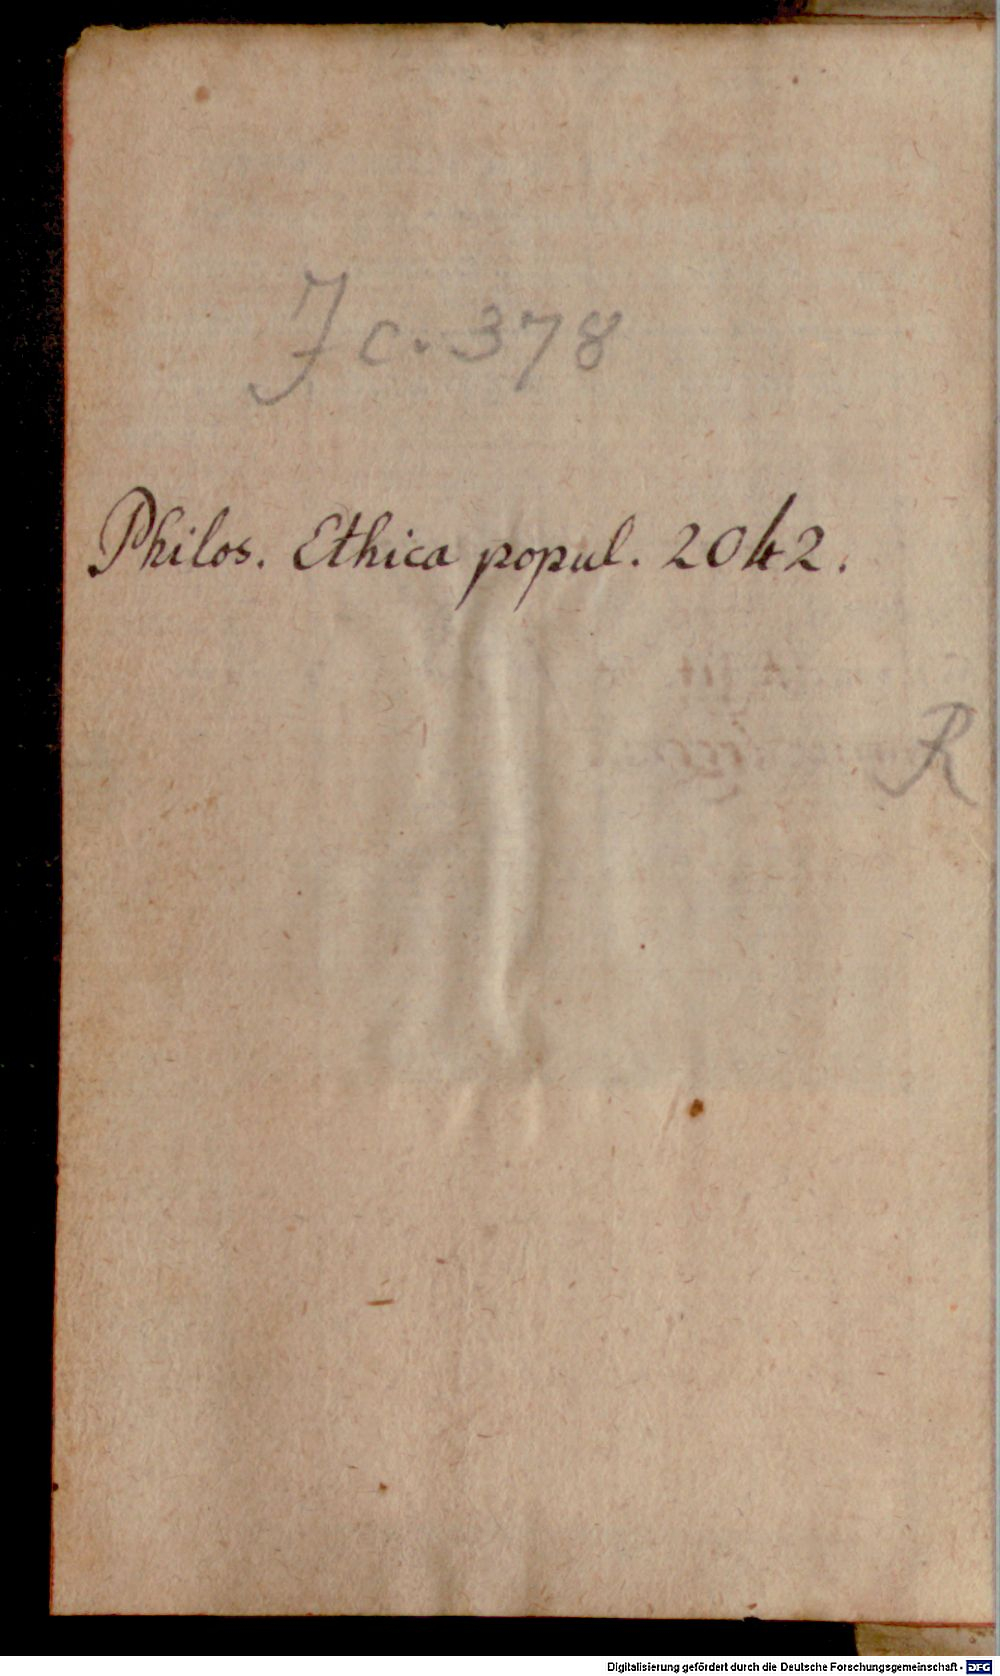 Jc. 378
Philos. Ethica popul. 2042.
R
Digitalisierung gefördert durch die Deutsche Forschungsgemeinschaft - DFG